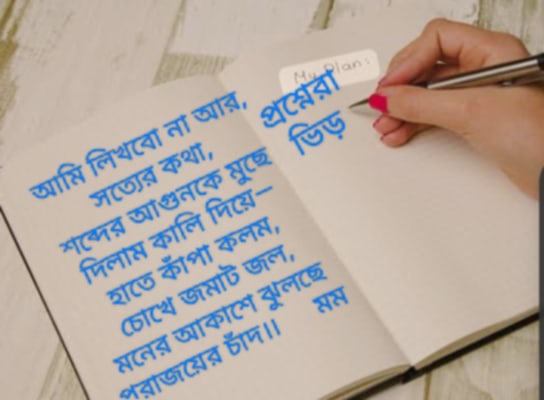 My Plan:
প্রশ্নেরা
ভিড়
আমি লিখবো না আর,
সত্যের কথা,
শব্দের আগুনকে মুছে
দিলাম কালি দিয়ে—
হাতে কাঁপা কলম,
চোখে জমাট জল,
মনের আকাশে ঝুলছে
পরাজয়ের চাঁদ।।
মম